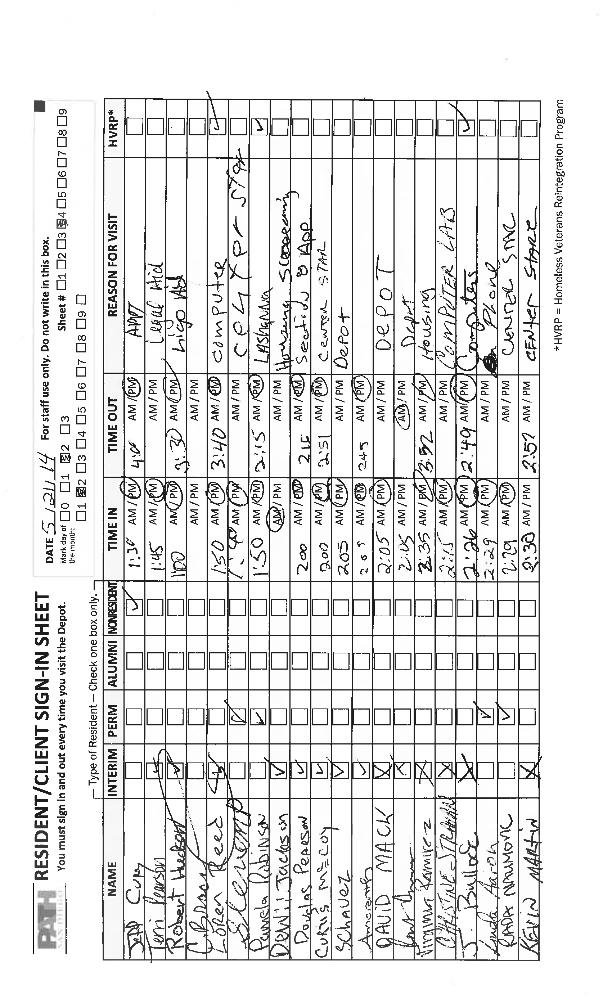 PATH
RESIDENT/CLIENT SIGN-IN SHEET
You must sign in and out every time you visit the Depot.
DATE 5/21/14 For staff use only. Do not write in this box.
Mark day of the month: □0 □1 ☒2 □3 Sheet # □1 □2 □3 ☒4 □5 □6 □7 □8 □9
□1 ☒2 □3 □4 □5 □6 □7 □8 □9 □
Type of Resident – Check one box only.
NAME INTERIM PERM ALUMNI NONRESIDENT TIME IN TIME OUT REASON FOR VISIT HVRP*
1:30 AM / PM 4:00 AM / PM APPT
Terri Pearson 1:45 AM / PM AM / PM Legal Aid
Robert Hudson 1:00 AM / PM 3:30 AM / PM
AM / PM AM / PM
Loren Reed 1:50 AM / PM 3:40 AM / PM computer
AM / PM AM / PM
Pamela Robinson 1:50 AM / PM 2:15 AM / PM
Jackson AM / PM AM / PM Housing
Douglas Pearson 200 AM / PM 215 AM / PM Section 8 App
Curtis McCoy 200 AM / PM 2:51 AM / PM Center STAR
SCHAVEZ 205 AM / PM AM / PM DEPOT
AM / PM 245 AM / PM
DAVID MACK 2:05 AM / PM AM / PM DEPOT
2:05 AM / PM AM / PM Depot
Virginia Ramirez 2:35 AM / PM 3:32 AM / PM Housing
CHRISTINE 2:15 AM / PM AM / PM COMPUTER LAB
J. Bullock 2:26 AM / PM 2:49 AM / PM Computers
Lynda Aaron 2:29 AM / PM AM / PM Phone
RADA NAUMOVIC 2:29 AM / PM AM / PM CENTER STAR
KEVIN MARTIN 2:30 AM / PM 2:57 AM / PM CENTER STARE
*HVRP = Homeless Veterans Reintegration Program